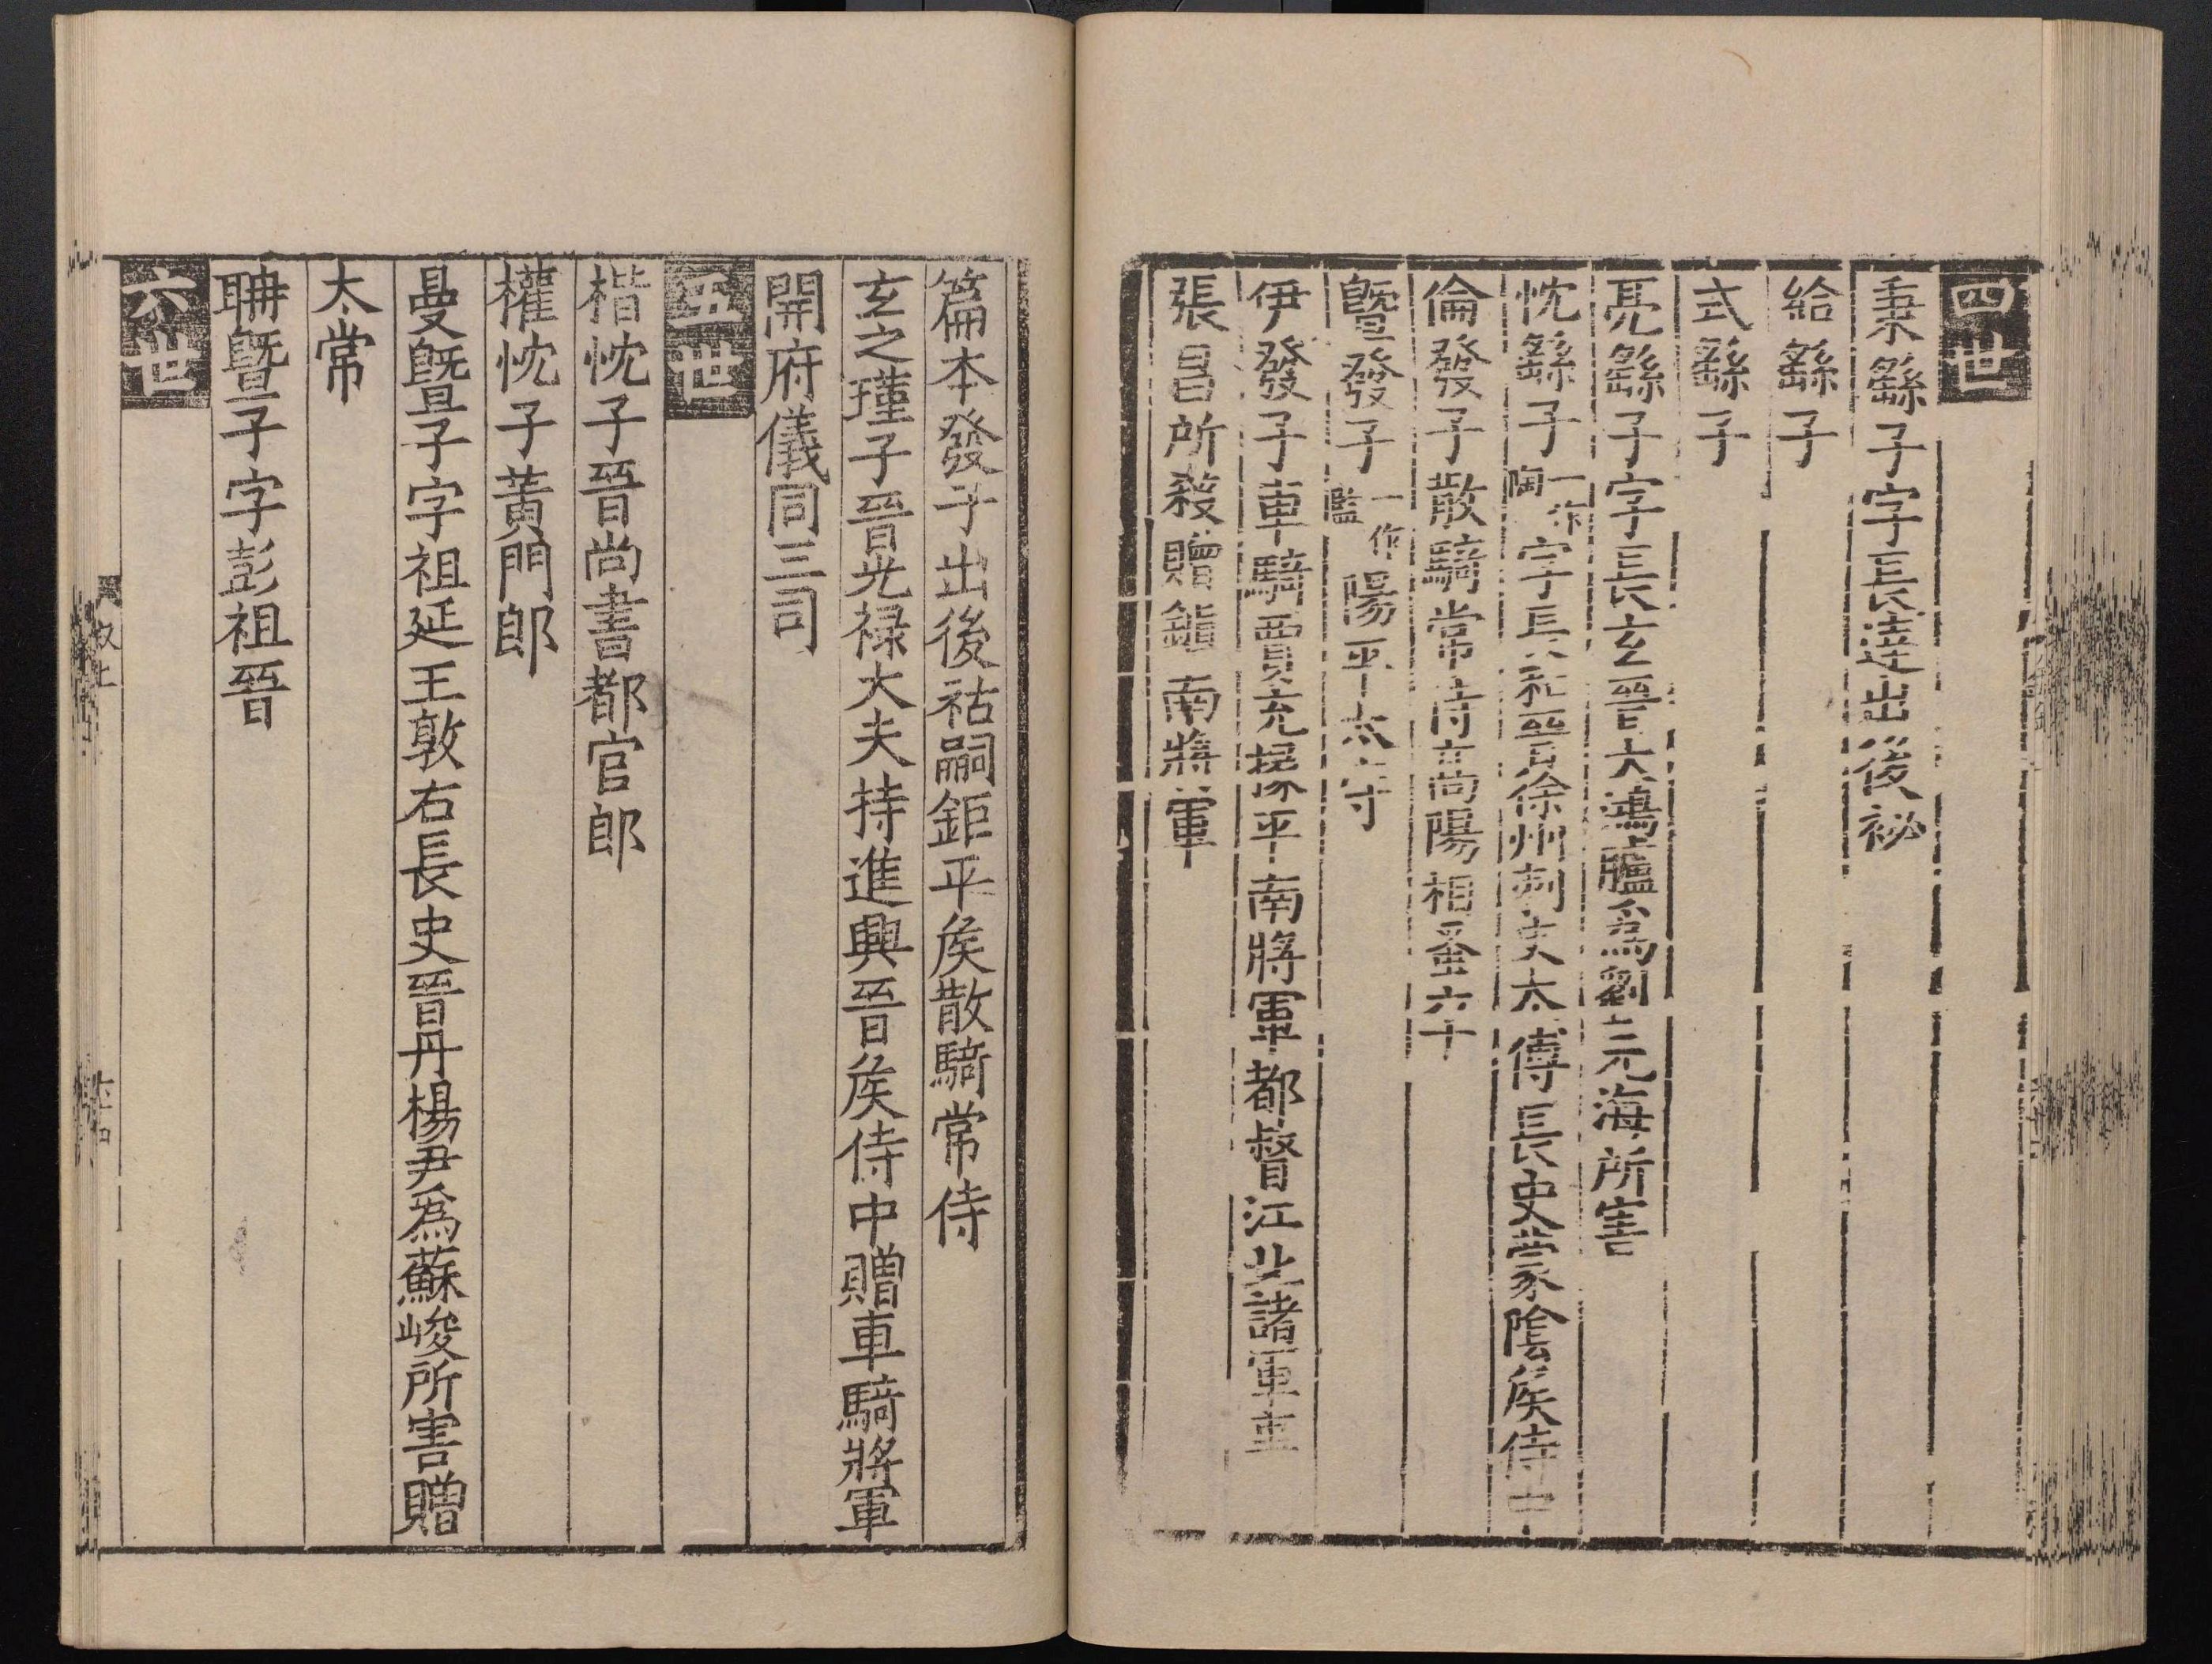 四世
秉繇子字長達出後祕
給繇子
式繇子
亮繇子字長玄晉大鴻臚爲劉元海所害
忱繇子一作陶字長和晉徐州刺史太傅長史蒙陰矦侍中
倫發子散騎常侍高陽相蚤六十
暨發子一作濫陽平太守
伊發子車騎賈充掾平南將軍都督江北諸軍事
張昌所殺贈鎮南將軍
篇本發子出後祜嗣鉅平矦散騎常侍
玄之瑾子晉光禄大夫持進興晉矦侍中贈車騎將軍
開府儀同三司
五世
楷忱子晉尚書都官郎
權忱子黃門郎
曼暨子字祖延王敦右長史晉丹楊尹爲蘇峻所害贈
太常
聃暨子字彭祖晉
六世